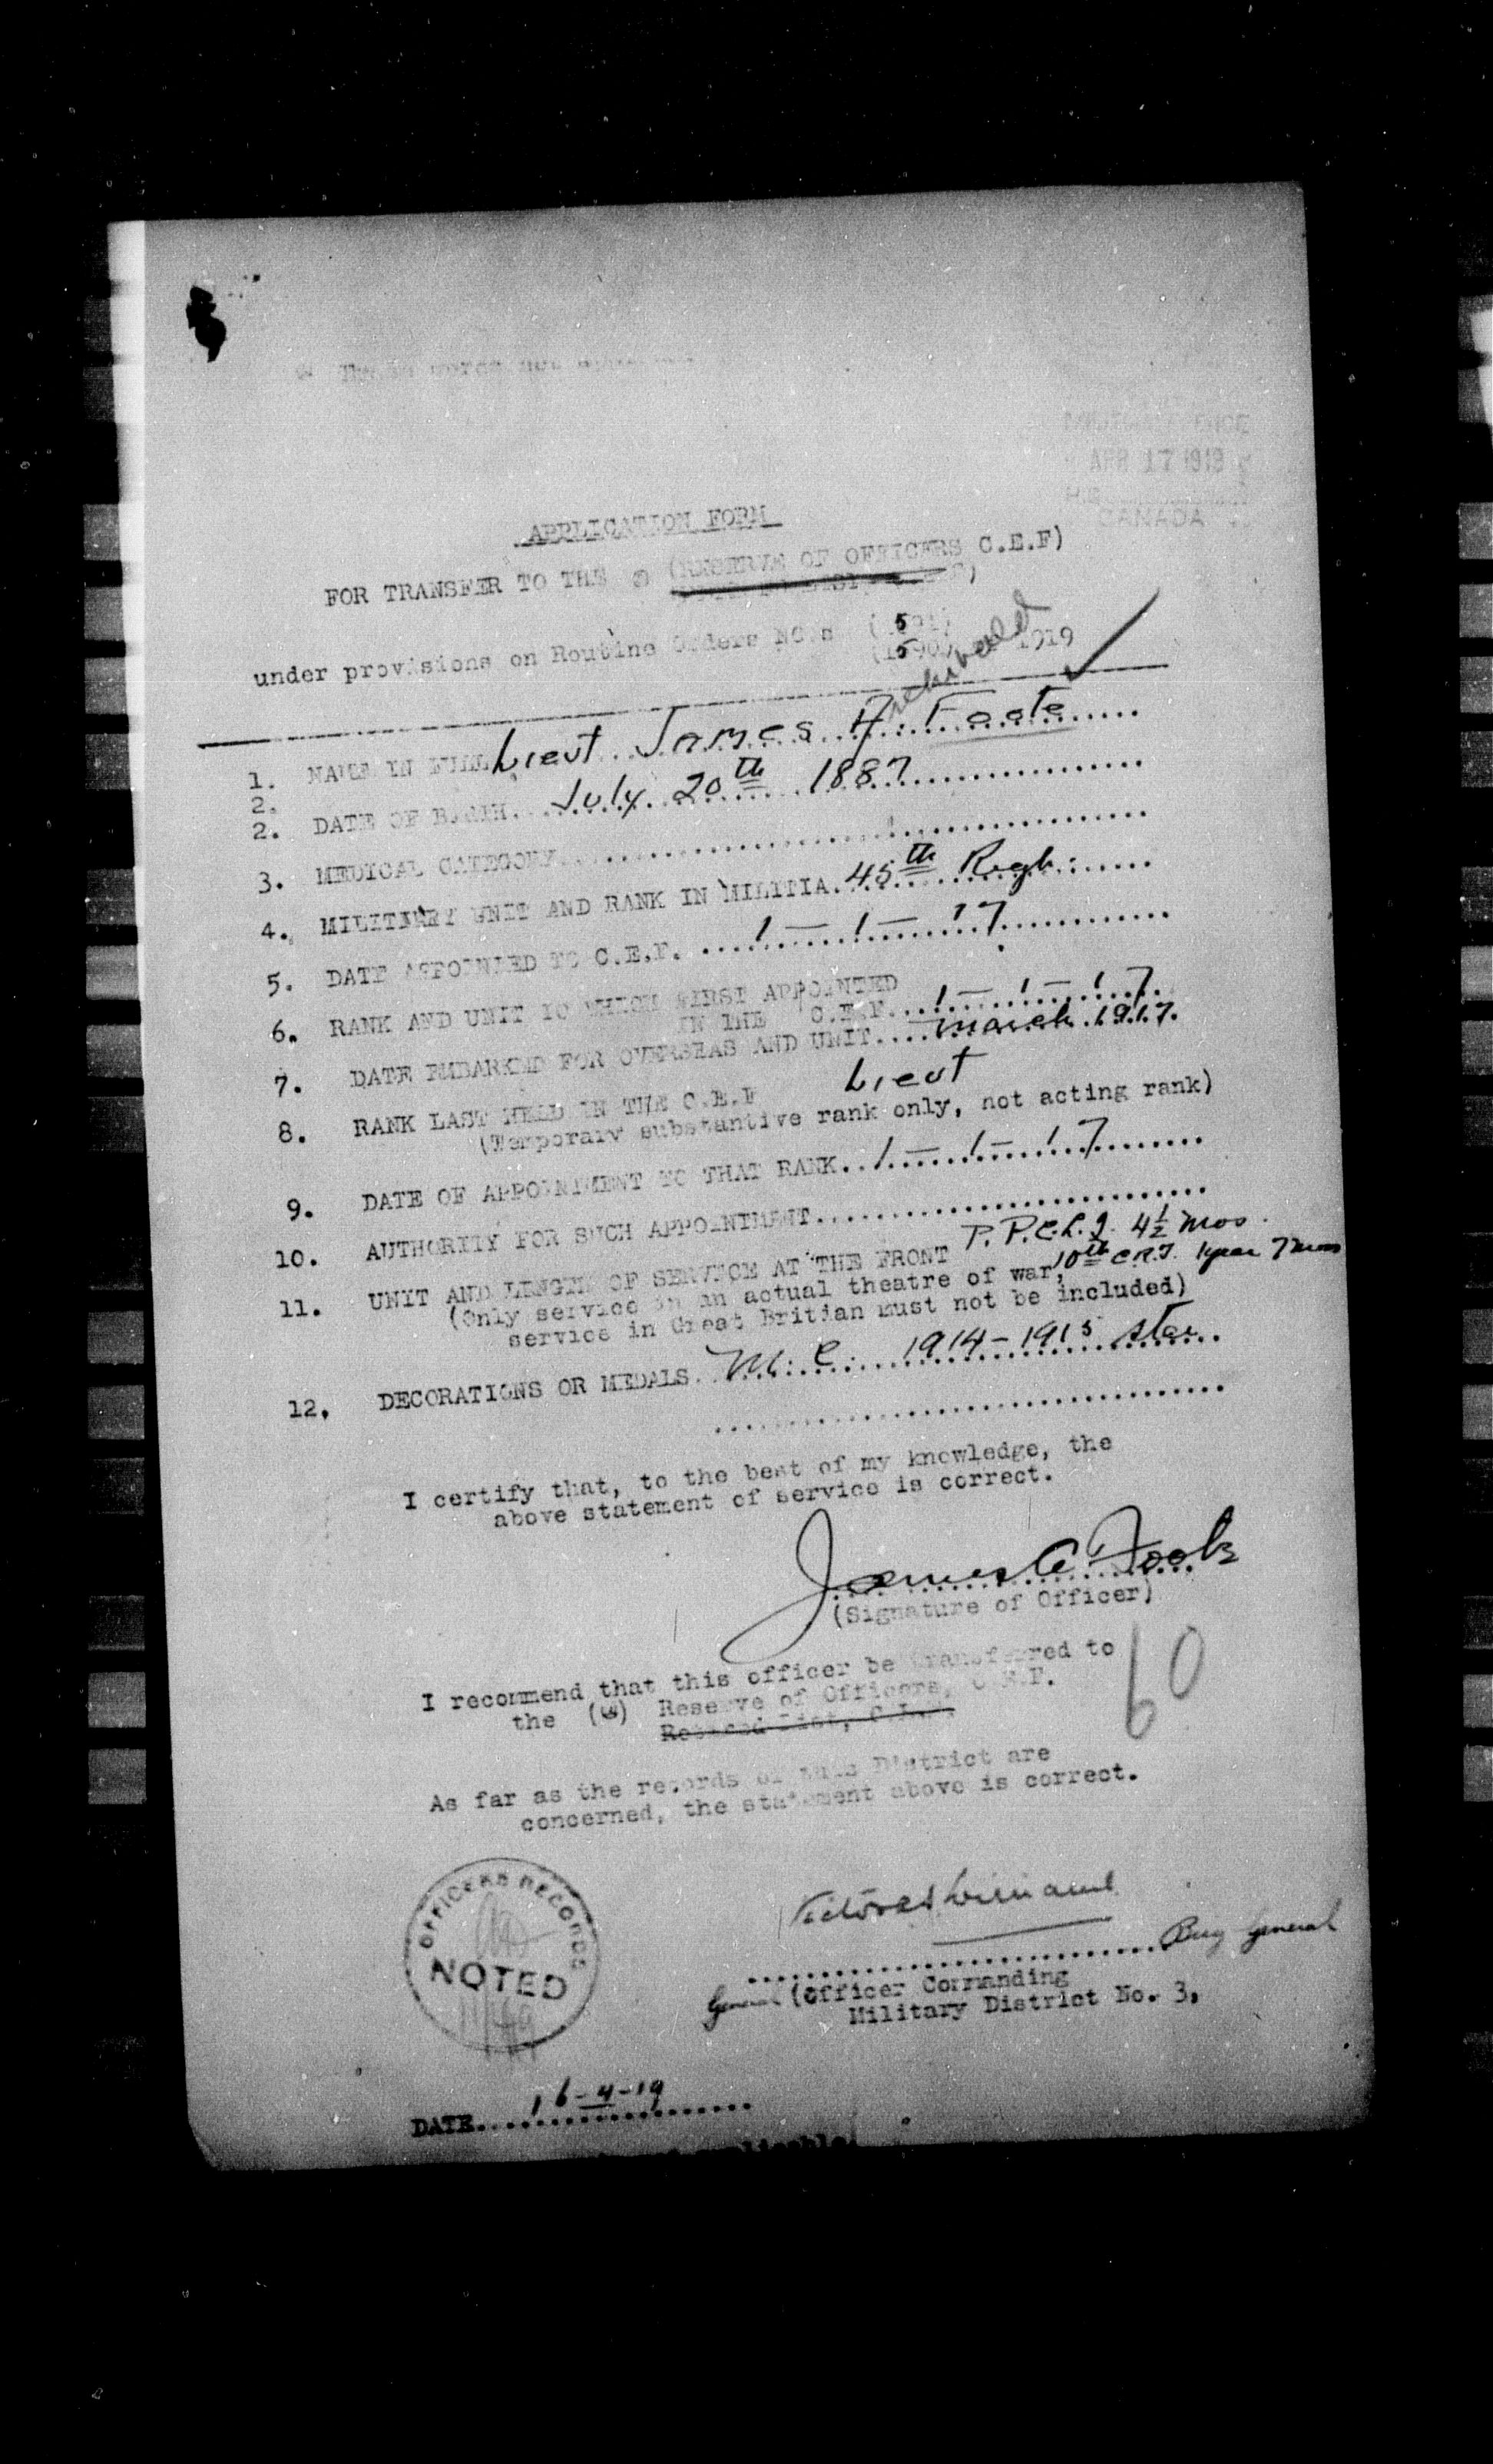 APR 17 1919
CANADA
APPLICATION FORM
FOR TRANSFER TO THE @ (RESERVE OF OFFICERS C.E.F)
under provisions on Routine Orders NO.s 1919
1. NAME IN FULL Lieut James A. Foote
2.
2. DATE OF BIRTH. July 20th 1887
3. MEDICAL CATEGORY
4. MILITARY UNIT AND RANK IN MILITIA. 45th Regt.
5. DATE APPOINTED TO C.E.F. 1-1-17
6. RANK AND UNIT TO WHICH FIRST APPOINTED
IN THE C.E.F. 1-1-17.
7. DATE EMBARKED FOR OVERSEAS AND UNIT. March 1917.
8. RANK LAST HELD IN THE C.E.F Lieut
(Temporary substantive rank only, not acting rank)
9. DATE OF APPOINTMENT TO THAT RANK. 1-1-17
10. AUTHORITY FOR SUCH APPOINTMENT
11. UNIT AND LENGTH OF SERVICE AT THE FRONT P.P.C.L.I. 4½ mos.
(Only service in an actual theatre of war, 10th C.R.T. 1 year 7 mos
service in Great Britian must not be included)
12. DECORATIONS OR MEDALS. M.C. 1914-1915 Star
I certify that, to the best of my knowledge, the
above statement of service is correct.
James A. Foote
(Signature of Officer)
I recommend that this officer be transferred to
the (@) Reserve of Officers, C.E.F.
Retired List, C.E.F.
60
As far as the records of this District are
concerned, the statement above is correct.
OFFICERS RECORDS
NOTED
Brig General
General (Officer Commanding
Military District No. 3.
DATE 16-4-19